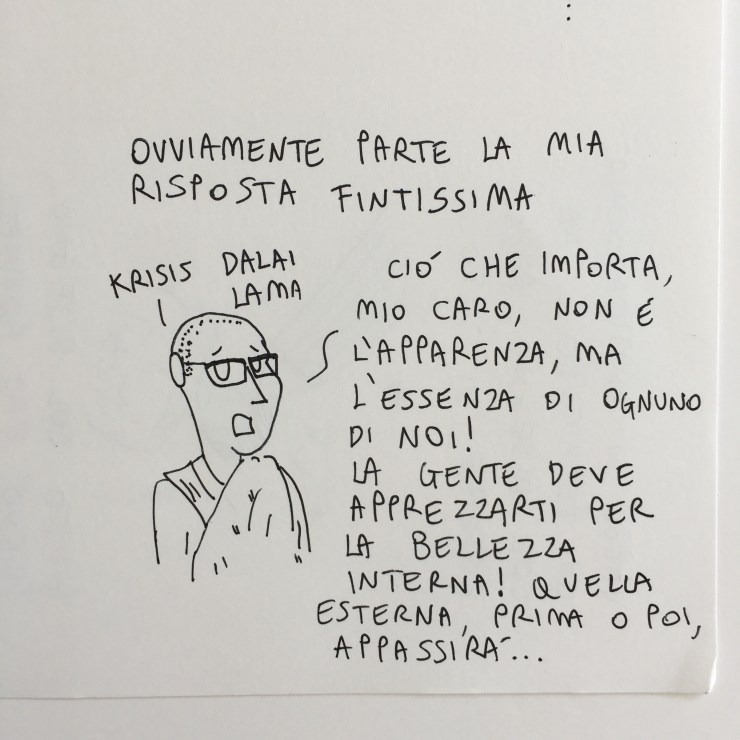 OVVIAMENTE PARTE LA MIA
RISPOSTA FINTISSIMA
KRISIS DALAI
LAMA
CIÓ CHE IMPORTA,
MIO CARO, NON É
L'APPARENZA, MA
L'ESSENZA DI OGNUNO
DI NOI!
LA GENTE DEVE
APPREZZARTI PER
LA BELLEZZA
INTERNA! QUELLA
ESTERNA, PRIMA O POI,
APPASSIRÁ...